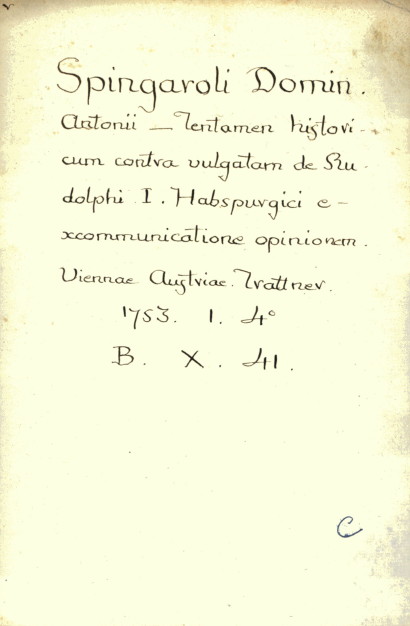 Spingaroli Domin.
Antonii — Tentamen histori-
cum contra vulgatam de Ru-
dolphi I. Habspurgici e-
xcommunicatione opinionem.
Viennae Austriae. Trattner.
1753. 1. 4°
B. X. 41.
C